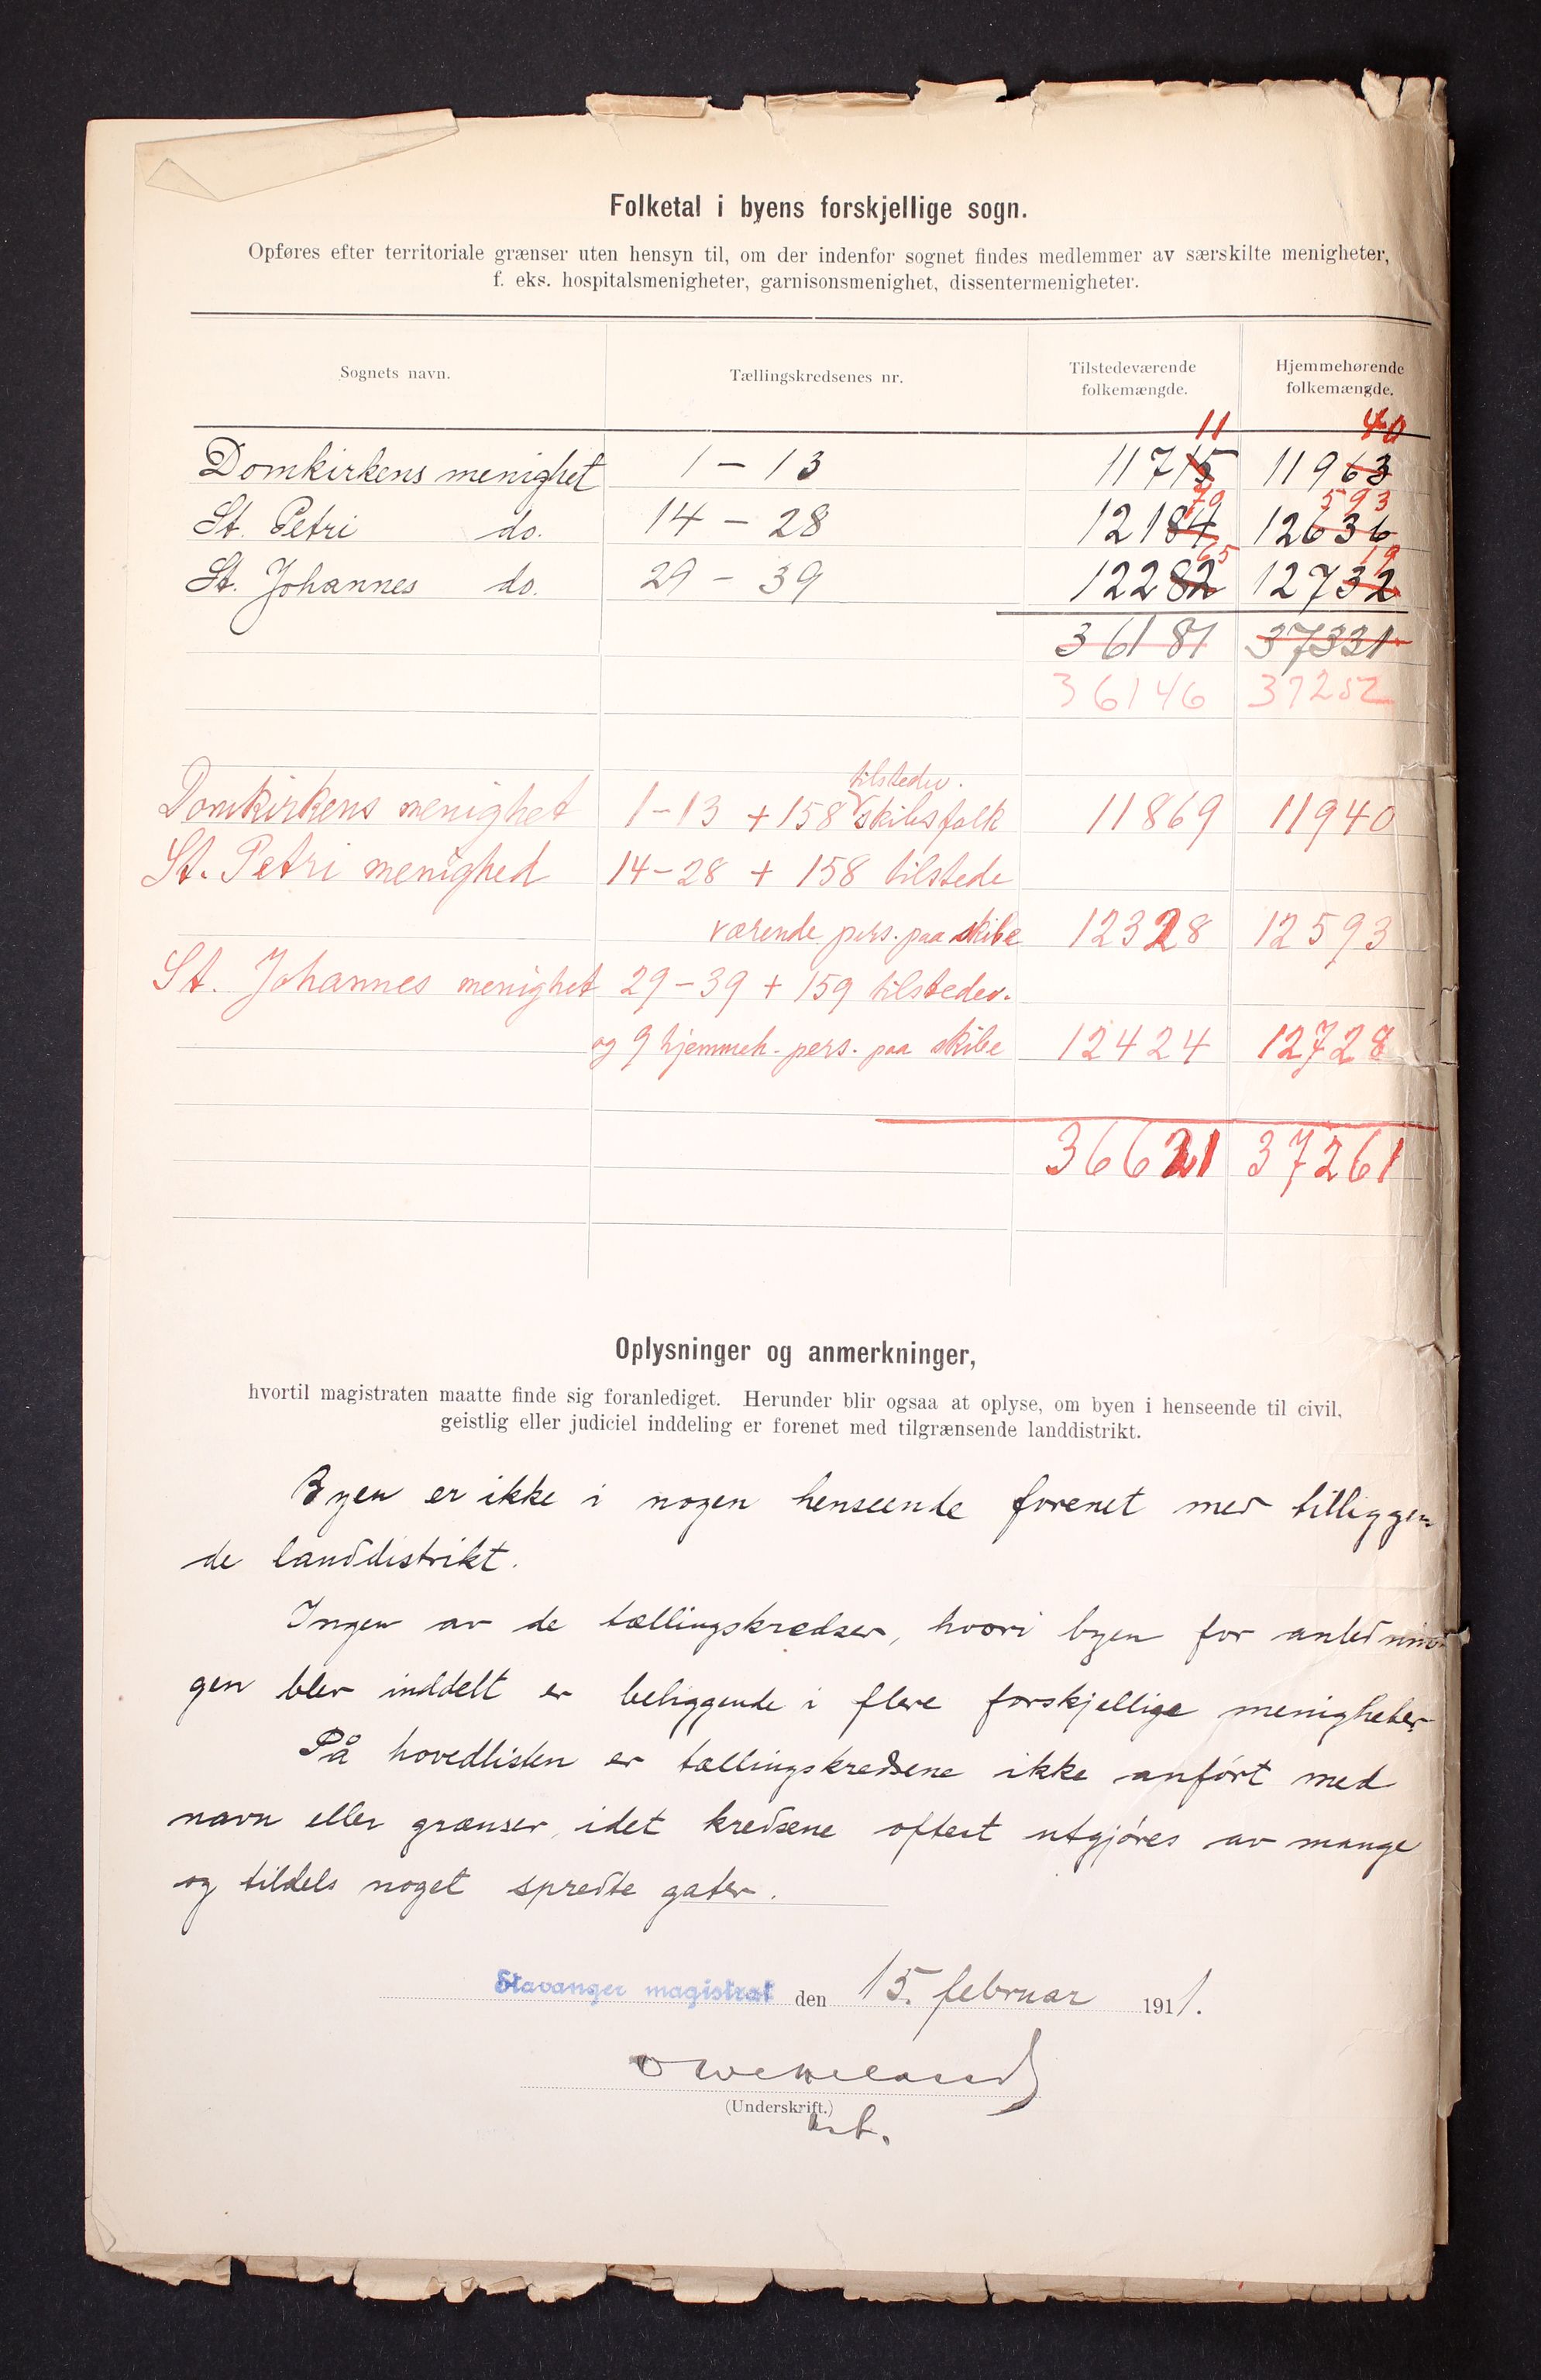 Folketal i byens forskjellige sogn.
Opføres efter territoriale grænser uten hensyn til, om der indenfor sognet findes medlemmer av særskilte menigheter,
f. eks. hospitalsmenigheter, garnisonsmenighet, dissentermenigheter.
Sognets navn. Tællingskredsenes nr. Tilstedeværende folkemængde. Hjemmehørende folkemængde.
11 40
Domkirkens menighet 1 – 13 11715 11963
70 593
St. Petri do. 14 – 28 12184 12636
65 19
St. Johannes do. 29 – 39 12282 12732
36181 37331
36146 37252
tilstedev.
Domkirkens menighet 1-13 + 158 skibsfolk 11869 11940
St. Petri menighed 14-28 + 158 tilstede
værende pers. paa skibe 12328 12593
St. Johannes menighet 29-39 + 159 tilstedev.
og 9 hjemmeh. pers. paa skibe 12424 12728
36621 37261
Oplysninger og anmerkninger,
hvortil magistraten maatte finde sig foranlediget. Herunder blir ogsaa at oplyse, om byen i henseende til civil,
geistlig eller judiciel inddeling er forenet med tilgrænsende landdistrikt.
Byen er ikke i nogen henseende forenet med tilliggen
de landdistrikt.
Ingen av de tællingskredser, hvori byen for anlednin
gen blev inddelt er beliggende i flere forskjellige menigheter.
På hovedlisten er tællingskredsene ikke anført med
navn eller grænser, idet kredsene oftest utgjøres av mange
og tildels noget spredte gater.
Stavanger magistrat den 15. februar 1911.
(Underskrift.)